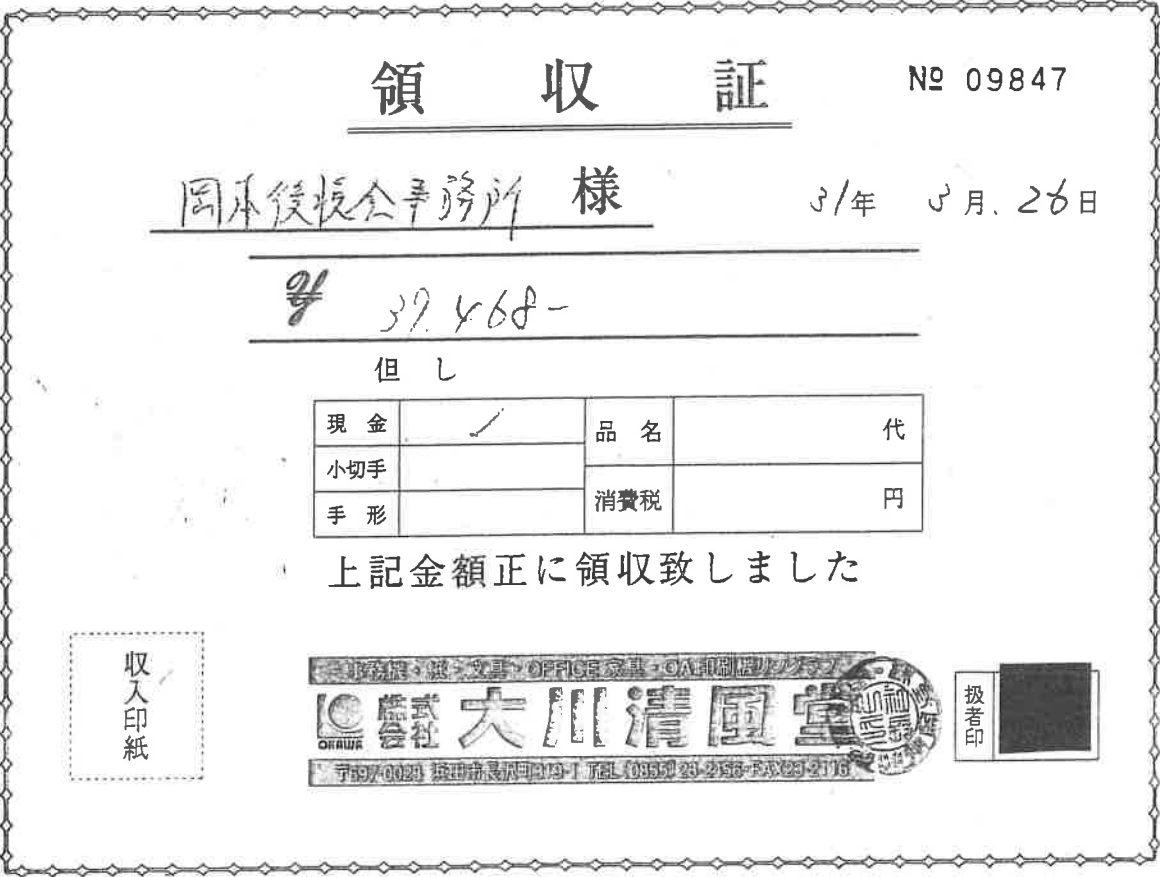 領収証
№ 09847
岡本後援会事務所 様
31年 3月. 26日
39.468-
但し
現金 ✓
小切手
手形
品名 代
消費税 円
上記金額正に領収致しました
収入印紙
事務機・紙・文具・OFFICE家具・OA印刷機
OKAWA
株式会社 大川清風堂
浜田市長沢町 TEL (0855) 23-2156・FAX23-2116
扱者印